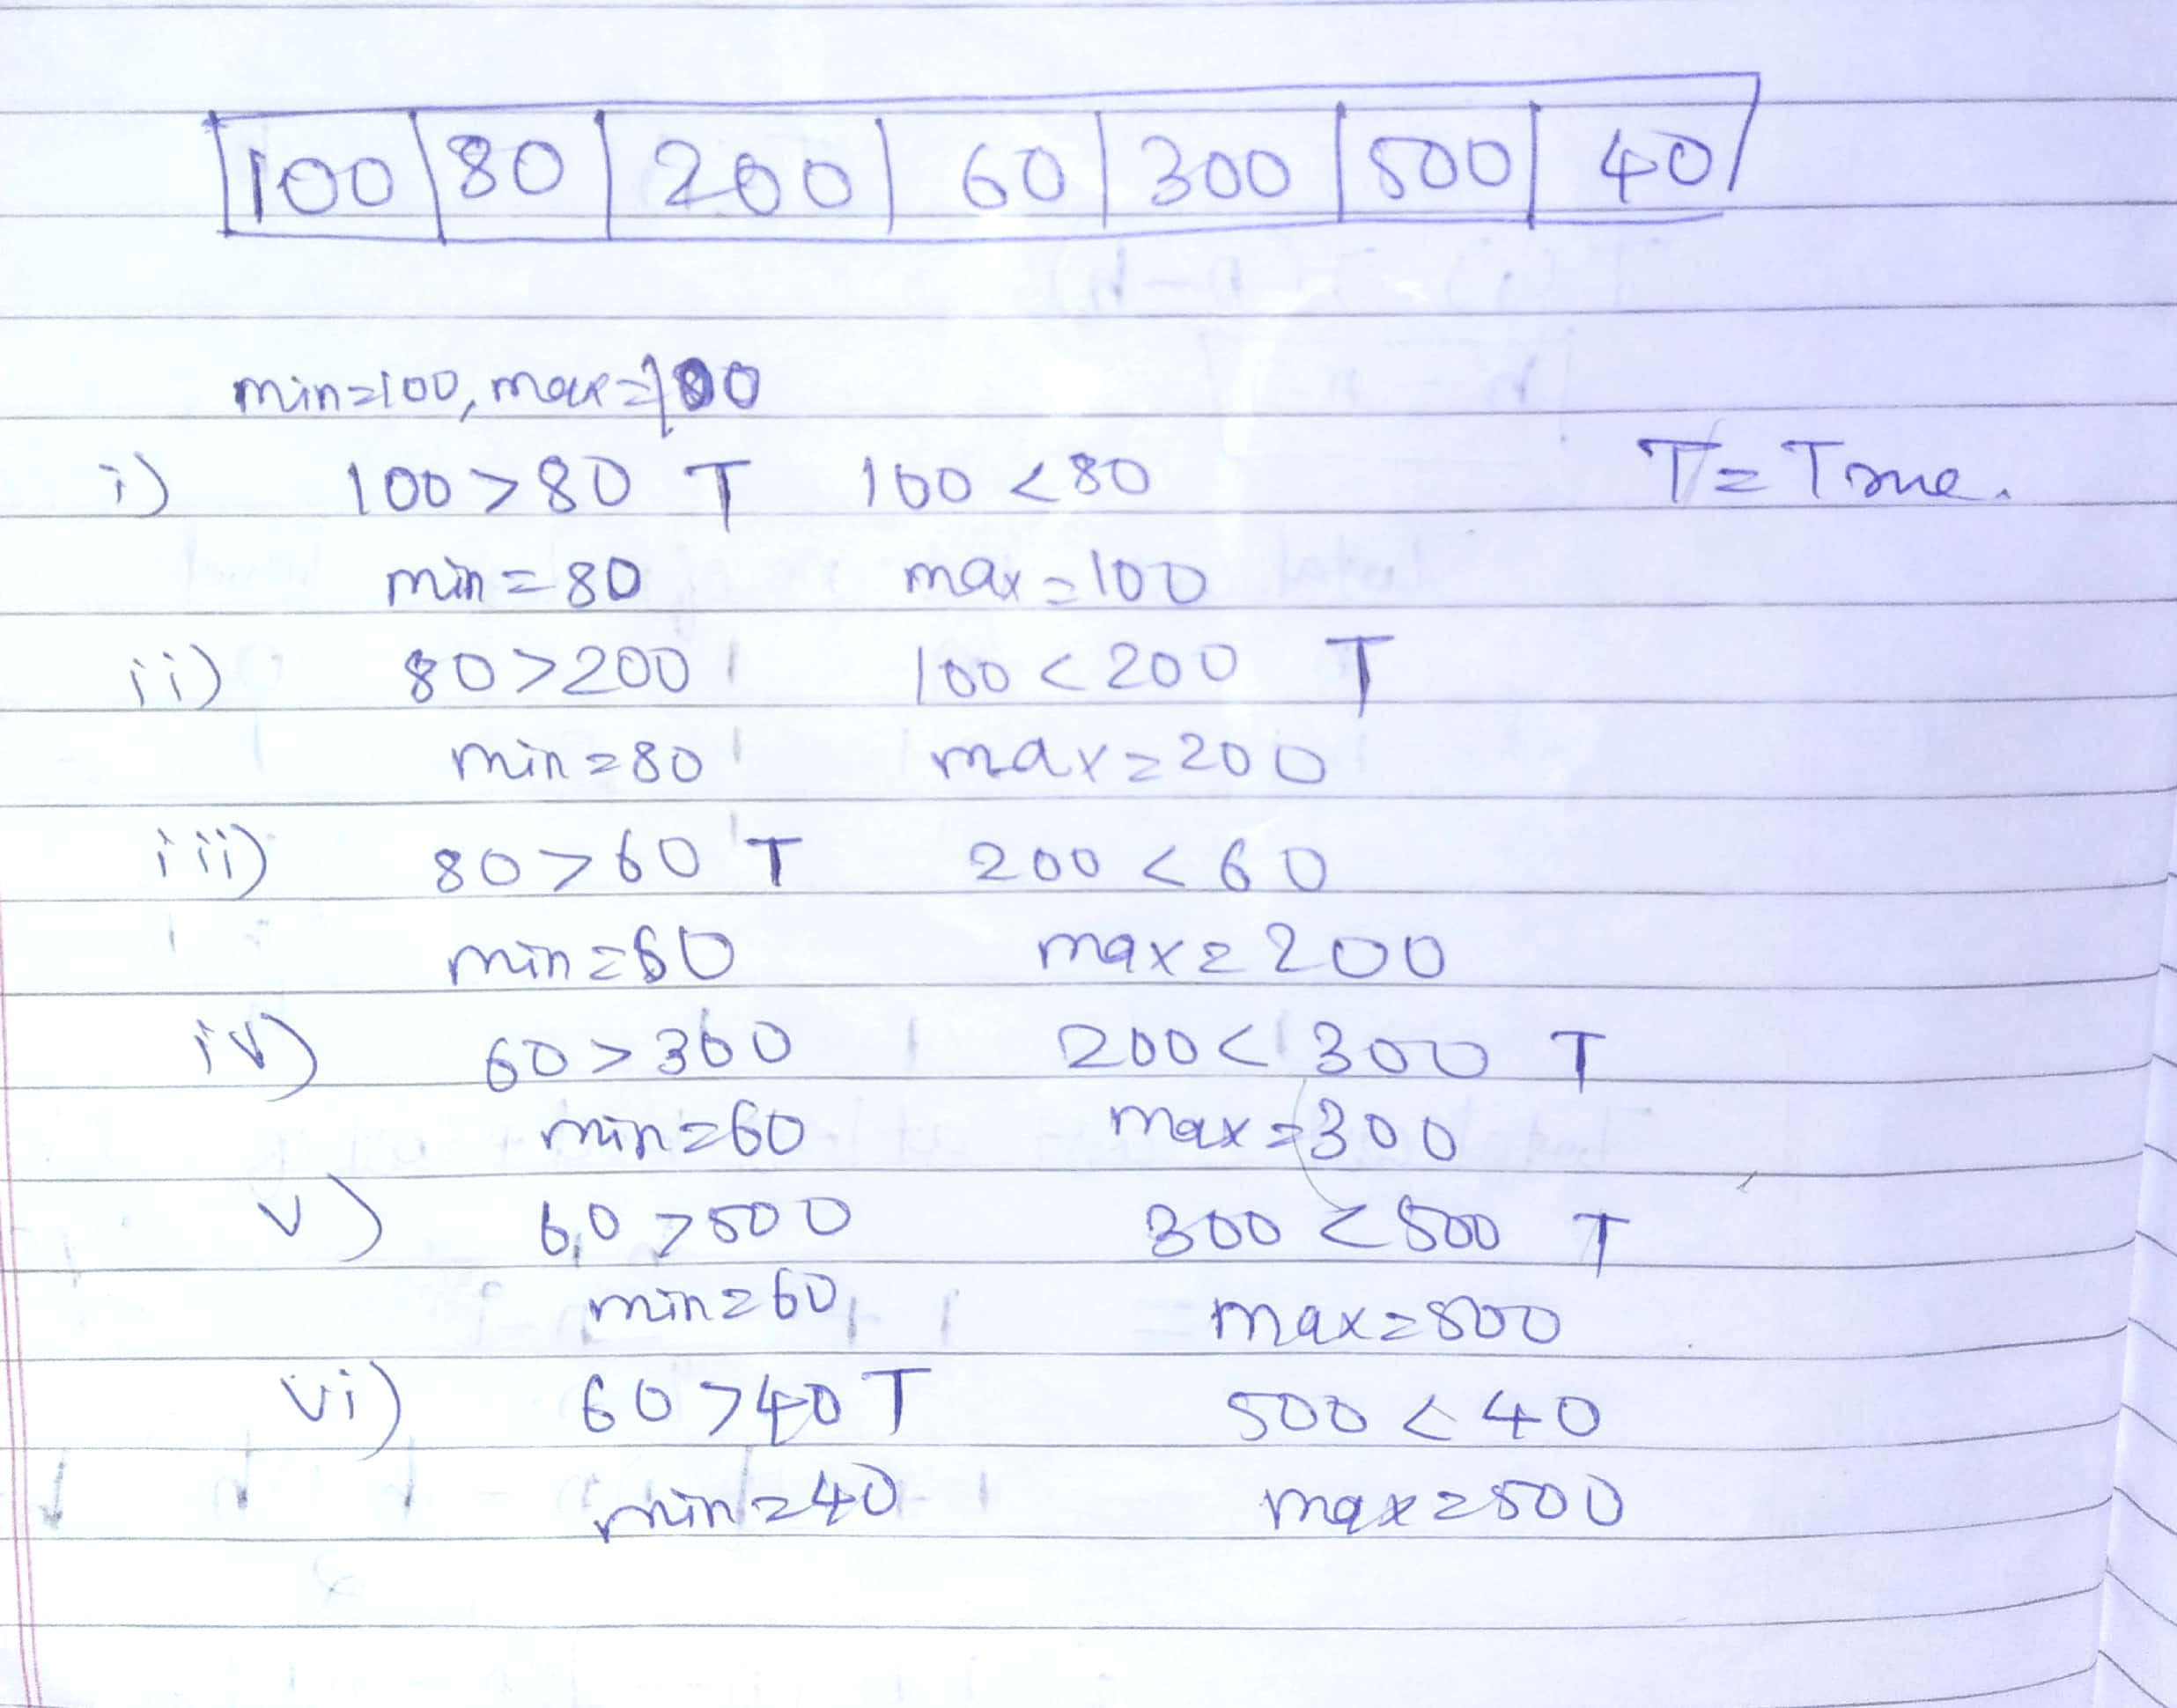 100 80 200 60 300 500 40
min=100, max=100
i) 100 > 80 T 100 < 80 T = True.
min = 80 max = 100
ii) 80 > 200 100 < 200 T
min = 80 max = 200
iii) 80 > 60 T 200 < 60
min = 60 max = 200
iv) 60 > 300 200 < 300 T
min = 60 max = 300
v) 60 > 500 300 < 500 T
min = 60 max = 500
vi) 60 > 40 T 500 < 40
min = 40 max = 500